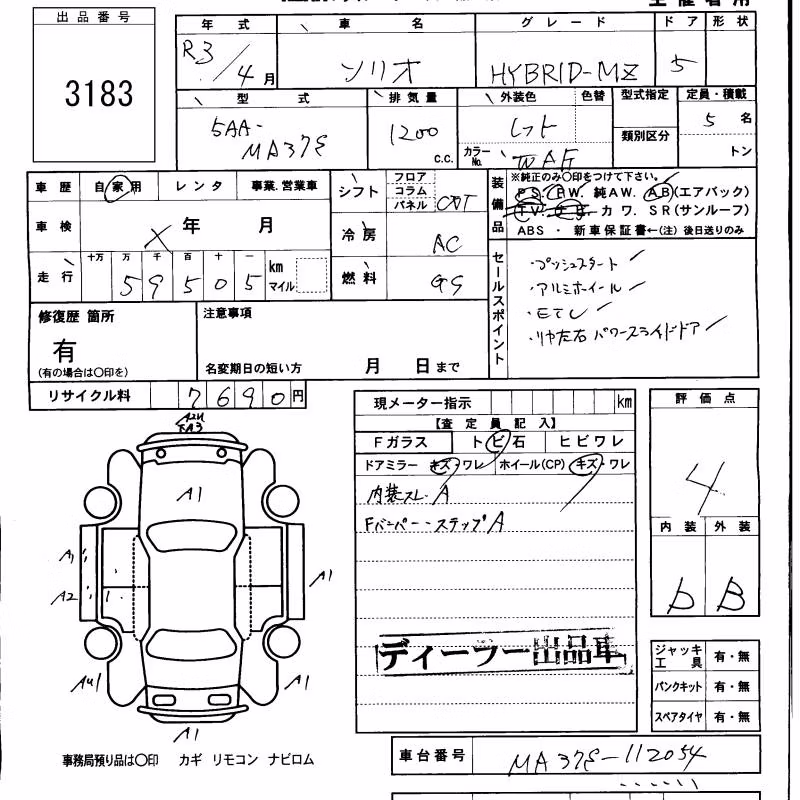 出品番号
3183
年式 車名 グレード ドア 形状
R3/4月 ソリオ HYBRID-MZ 5
型式 排気量 外装色 色替 型式指定 定員・積載
5AA-MA37S 1200 c.c. レッド 類別区分 5名
カラーNo. トン
車歴 自家用 レンタ 事業.営業車
シフト フロア コラム パネル CVT
装備品 ※純正のみ〇印をつけて下さい。
PS. PW. 純AW. AB(エアバック)
TV. ナビ. カワ. SR(サンルーフ)
ABS ・ 新車保証書←(注) 後日送りのみ
車検 X年 月
冷房 AC
走行 十万 万 千 百 十 一
59505 km マイル
燃料 GS
セールスポイント
・プッシュスタート
・アルミホイール
・ETC
・リヤ左右パワースライドドア
修復歴 箇所
有
(有の場合は〇印を)
注意事項
名変期日の短い方 月 日まで
リサイクル料 7690円
現メーター指示 km
【査定員記入】
Fガラス トビ石 ヒビワレ
ドアミラー キズ・ワレ ホイール(CP) キズ・ワレ
内装スレ. A
Fバンパー・ステップA
評価点
4
内装 外装
b B
A1
A1
A2
A1
A1
A1
ディーラー出品車
ジャッキ工具 有・無
パンクキット 有・無
スペアタイヤ 有・無
事務局預り品は〇印 カギ リモコン ナビロム
車台番号 MA37S-112054